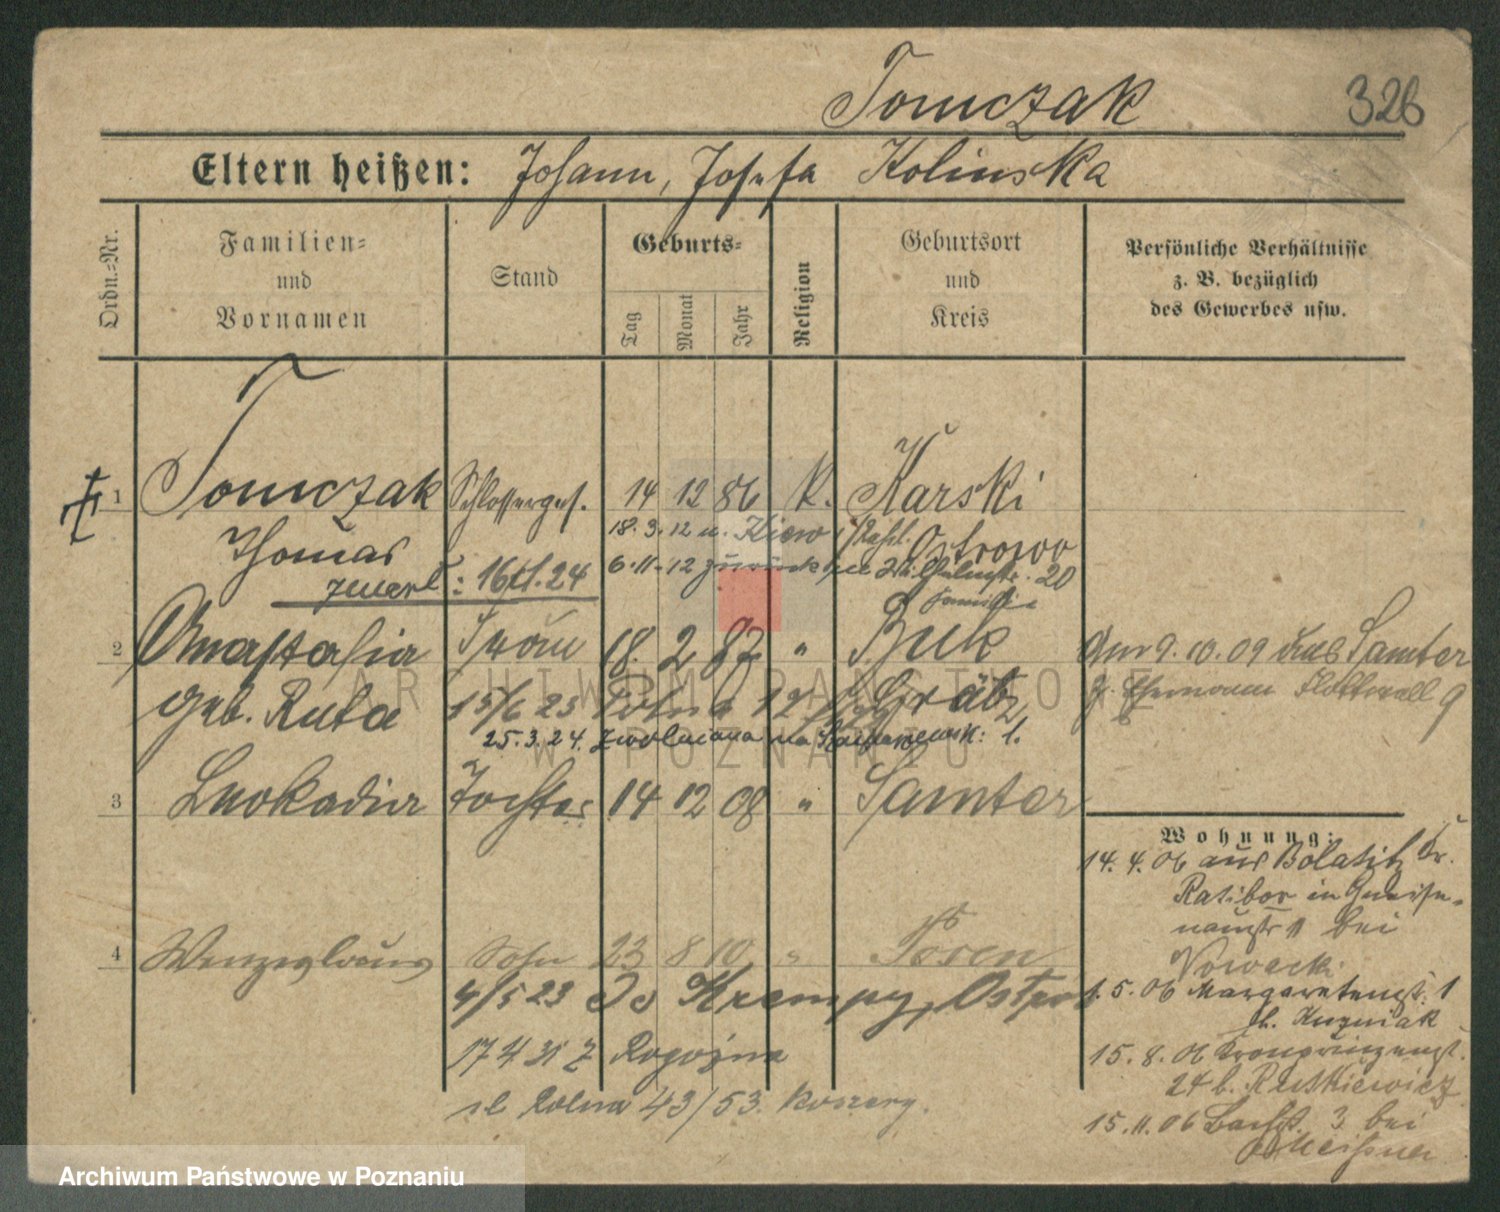 Tomczak 326
Eltern heißen: Johann, Josefa Kolinska
Ordn.-Nr.
Familien-
und
Vornamen
Stand
Geburts-
Tag
Monat
Jahr
Religion
Geburtsort
und
Kreis
Persönliche Verhältnisse
z. B. bezüglich
des Gewerbes usw.
1 Tomczak Schlosserges. 14 12 86 k. Karski
Thomas
18. 3. 12 n. Kiew Ostrowo
zmarł: 16/11.24
6.11.12 zurück 20
Familie
2 Anastasia Frau 18. 2 87 " Buk
Am 9. 10. 09 aus Samter
geb. Ruta 15/6 23 Polna 12 Grätz
9
25.3.24.
3 Leokadia Tochter 14 12 08 " Samter
Wohnung:
14. 4. 06 aus Kr.
Ratibor in Gneise-
naustr 1 bei
Nowacki
4 Wenzeslaus Sohn 23 8 10 " Posen
4/5 23 Do Krempy, Ostrow
1. 5. 06 Margaretenst. 1
b. Kuzniak
17 4 31 z Rogoźna
15. 8. 06 Kronprinzenst.
24 b. Rutkiewicz
ul Polna 43/53. koszary.
15. 11. 06 3 bei
Meissner
ARCHIWUM PAŃSTWOWE
W POZNANIU
Archiwum Państwowe w Poznaniu